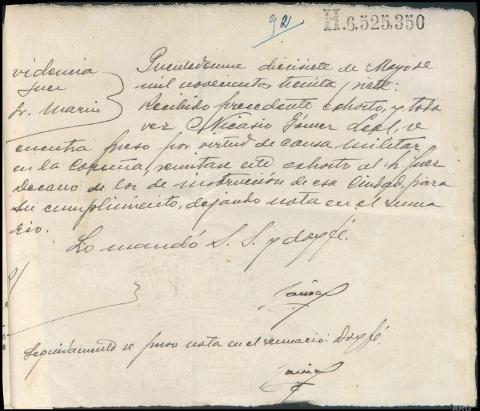 92
H.6,525,350
videncia
Juez
Sr. Marin
Puentedeume diecisiete de Mayo de
mil novecientos treinta y siete.
Recibido precedente exhorto, y toda
vez Nicasio Gómez Leal, se
encuentra preso por virtud de causa militar
en la Coruña, remitase este exhorto al Sr. Juez
Decano de los de instrucción de esa Ciudad, para
su cumplimiento, dejando nota en el suma
rio.
Lo mandó S. S. y doy fé.
Seguidamente se puso nota en el sumario. Doy fé.